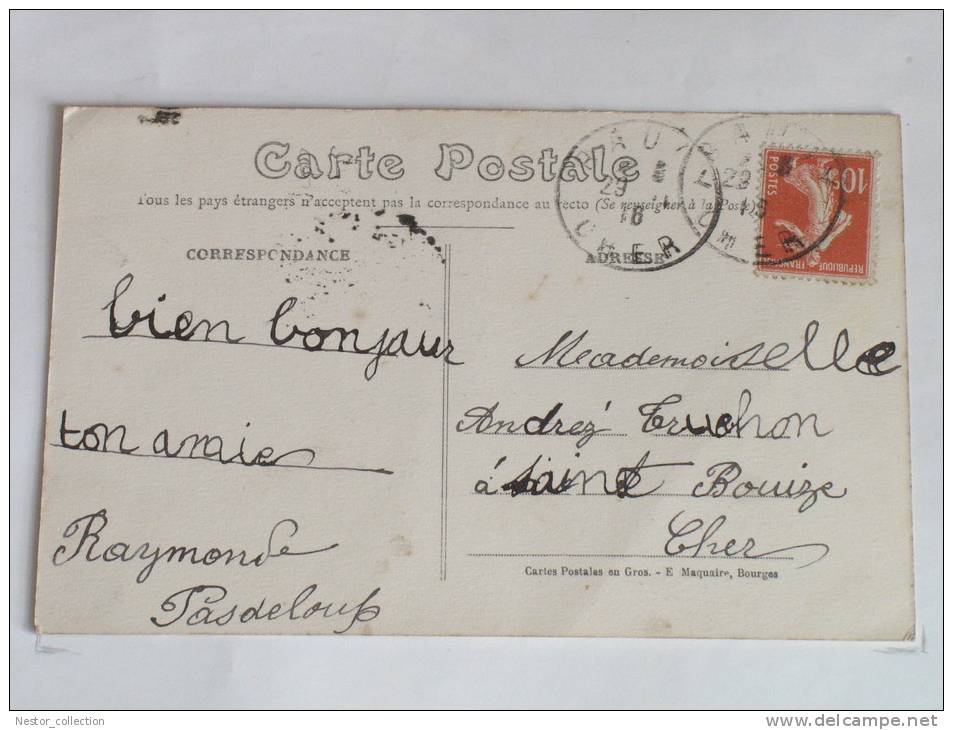 Carte Postale
Tous les pays étrangers n'acceptent pas la correspondance au recto (Se renseigner à la Poste)
CORRESPONDANCE
ADRESSE
bien bonjour
ton amie
Raymonde
Pasdeloup
Meademoiselle
Andreé Truchon
à saint Bouize
Cher
Cartes Postales en Gros. - E Maquaire, Bourges
CHER
10c
POSTES
REPUBLIQUE FRANC
Nestor_collection
www.delcampe.net